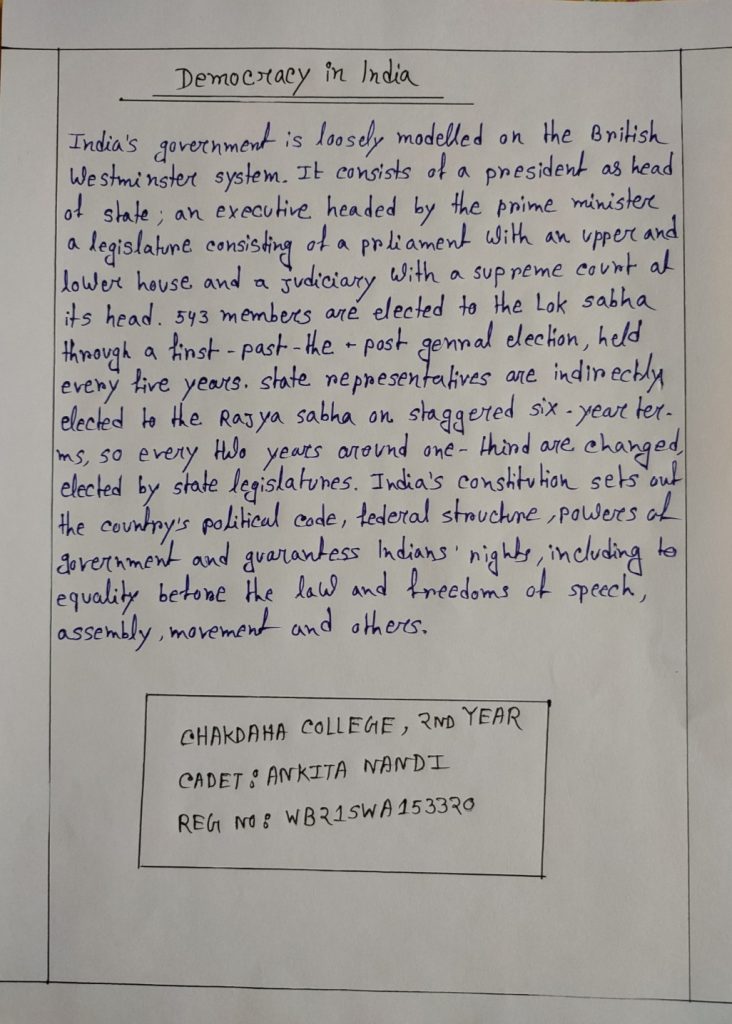 Democracy in India
India's government is loosely modelled on the British
Westminster system. It consists of a president as head
of state; an executive headed by the prime minister
a legislature consisting of a prliament with an upper and
lower house and a judiciary with a supreme court at
its head. 543 members are elected to the Lok sabha
through a first-past-the-post genral election, held
every five years. state representatives are indirectly
elected to the Rajya sabha on staggered six-year ter-
ms, so every two years around one-third are changed,
elected by state legislatures. India's constitution sets out
the country's political code, federal structure, powers of
government and guarantess Indians' rights, including to
equality before the law and freedoms of speech,
assembly, movement and others.
CHAKDAHA COLLEGE, 2ND YEAR
CADET: ANKITA NANDI
REG NO: WB21SWA153320